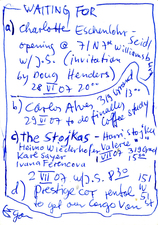 WAITING FOR
a) Charlotte Eschenlohr - Seidl
opening @ 71 N7th Williamsburg
w/ J.S. (invitation
by Doug Henders)
28 VI 07 20°°
b) Carlos Alves, 319 Grand
29 VI 07 to do 13°°
finally study
coffee
c) The Stojkas - Harri Stojka
Heimo Wiederhofer Valerie
Karl Sayer 1 VII 07 319 Grand
Ivana Ferencova 15°°
2 VII 07 w/ J.S. 8 30
d) prestige car rental 151
to get our cargo van